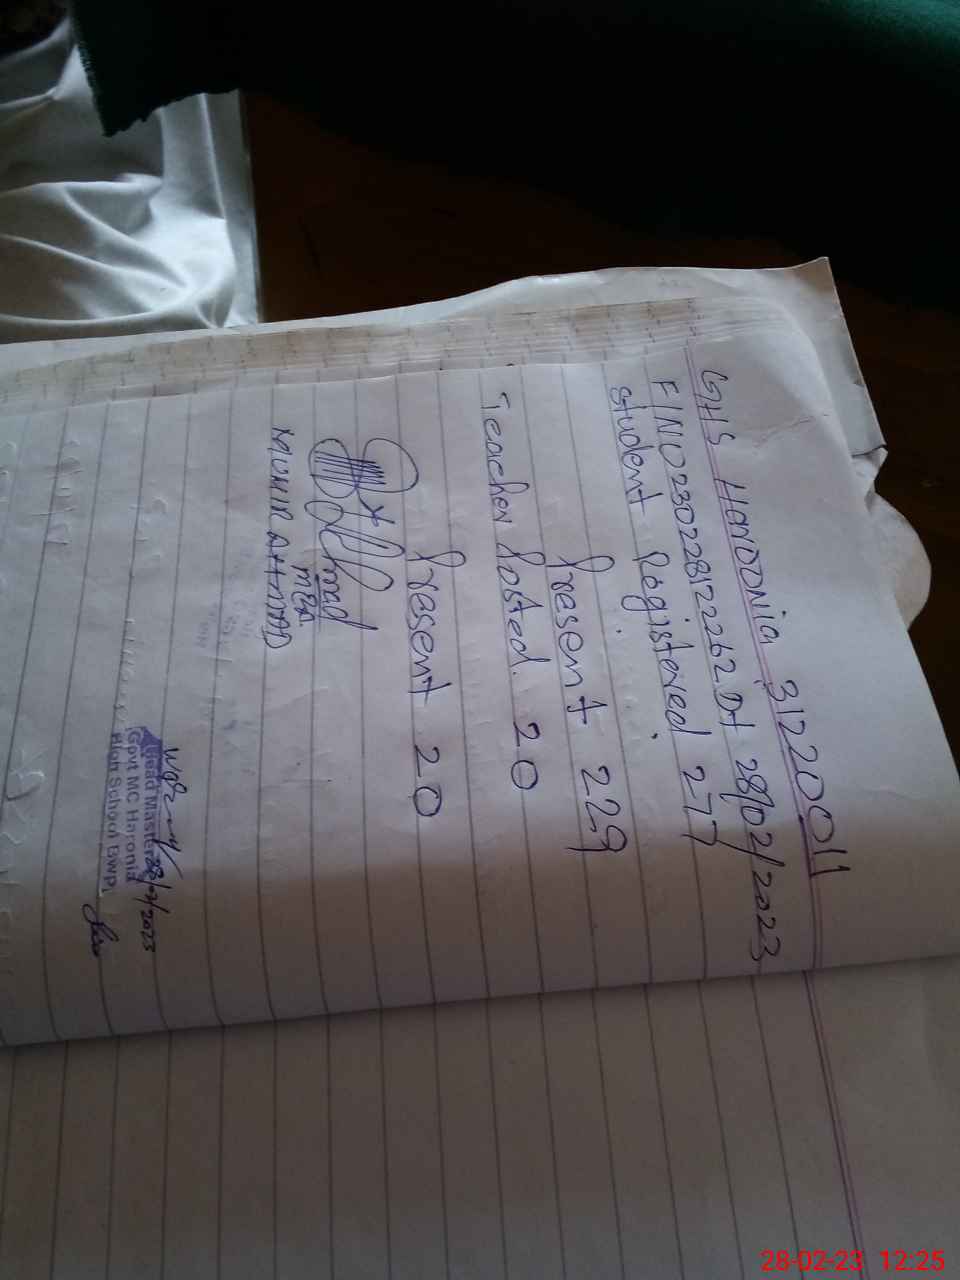 GHS Haroonia 31220011
FIN10230228122262 Dt 28/02/2023
Student Registered 277
Present 229
Teacher Posted. 20
Present 20
MEA
Head Master 28/02/2023
Govt MC Haronia
High School Bwp.
28-02-23 12:25